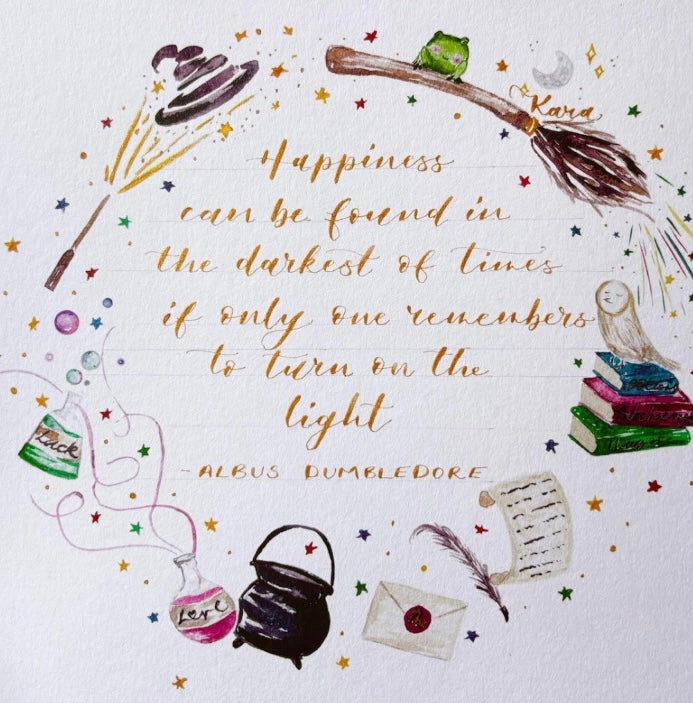 Kara
Happiness
can be found in
the darkest of times
if only one remembers
to turn on the
light
- ALBUS DUMBLEDORE
Luck
Love